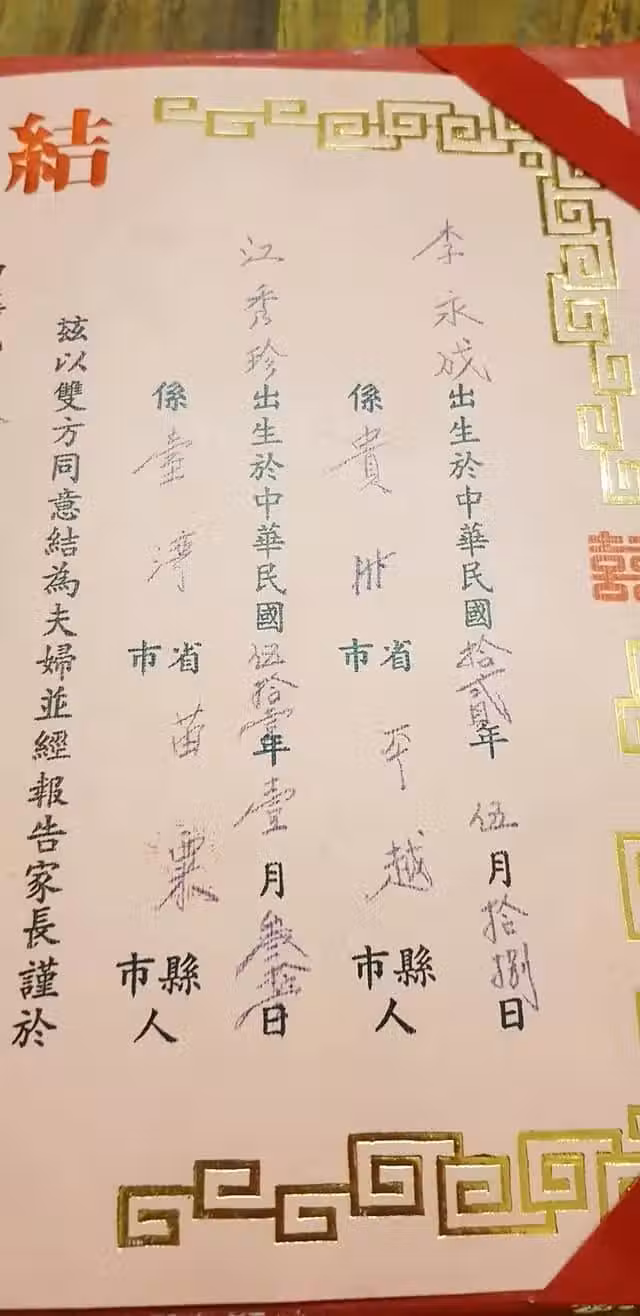 結
李永成出生於中華民國拾貳年伍月拾捌日
係貴州省市平越縣市人
江秀珍出生於中華民國伍拾壹年壹月日
係臺灣省市苗栗縣市人
茲以雙方同意結為夫婦並經報告家長謹於
囍